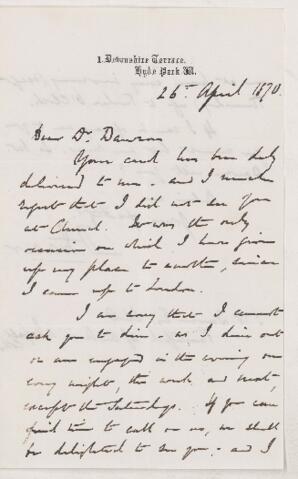 1. Devonshire Terrace.
Hyde Park W.
26th April 1870.
Dear Dr Dawson
Your card has been duly
delivered to me - and I much
regret that I did not see you
at Church. It was the only
occasion on which I have given
up my place to another, since
I came up to London.
I am sorry that I cannot
ask you to dine - as I dine out
or am engaged in the evening on
every night, this week and next,
except the Saturdays. If you can
find time to call on us, we shall
be delighted to see you - and I